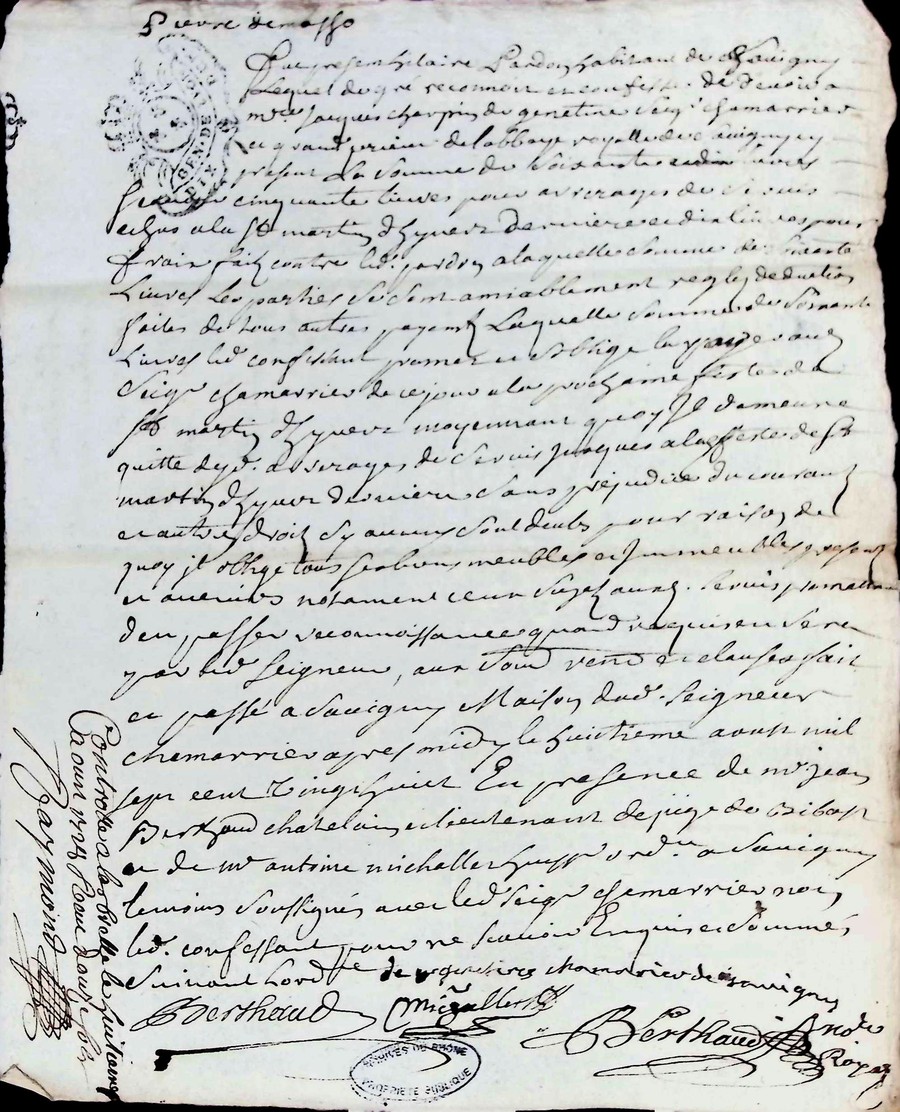 Pierre demasso
GEN. DE
Fut present hilaire Pardon habitant de Savigny
Lequel de gré reconnoit et confesse de devoir a
mre Jacques charpin de genetine Seigr chamarrier
et grand prieur de labbaye royalle de Savigny
present La Somme de Soixante et dix livres
Scavoir cinquante livres pour arrerages de Servis
echus a la St martin dhyvert derniere et dix livres pour
frais fait contre led. pardon a laquelle Somme de Soixante
Livres Les parties Se Sont amiablement reglés deduction
faites de tous autres payemts Laquelle Somme de Soixante
Livres led. confessant promet et oblige la payer aud.
Seigr chamarrier de ce jour a la prochaine feste de
St martin dhyvert moyennant quoy Il demeure
quitte desd. arrerages de Servis Jusques a la feste de St
martin dhyver derniere Sans prejudice du courant
et autres droits Sy aucuns Sont deubs pour raison de
quoy Il oblige tous Ses biens meubles et Immeubles presents
et avenirs notament ceux Sujets aud. Servis promettant
den passer reconnoissance quand requis en Sera
par led. Seigneur, aux Soud vend et clauses fait
et passé a Savigny Maison dud. Seigneur
chamarrier apres midy le huitieme aoust mil
sept cent vingt huict En presence de mr Jean
Berthaud chatelain et lieutenant de juge de
et de mr antoine michallet huissr ordre a Savigny
temoins Soussignés avec led. Seigr chamarrier non
led. confessant pour ne Scavoir Enquis et Sommés
Suivant Lordce de genetines chamarier de Savigny
Berthaud Michallet
Berthaud Nore Royal
ARCHIVES DU RHONE
PROPRIETE PUBLIQUE
Controllé a la Bresle le huitaine
aoust 1728 Reçu douze sols
Raymond